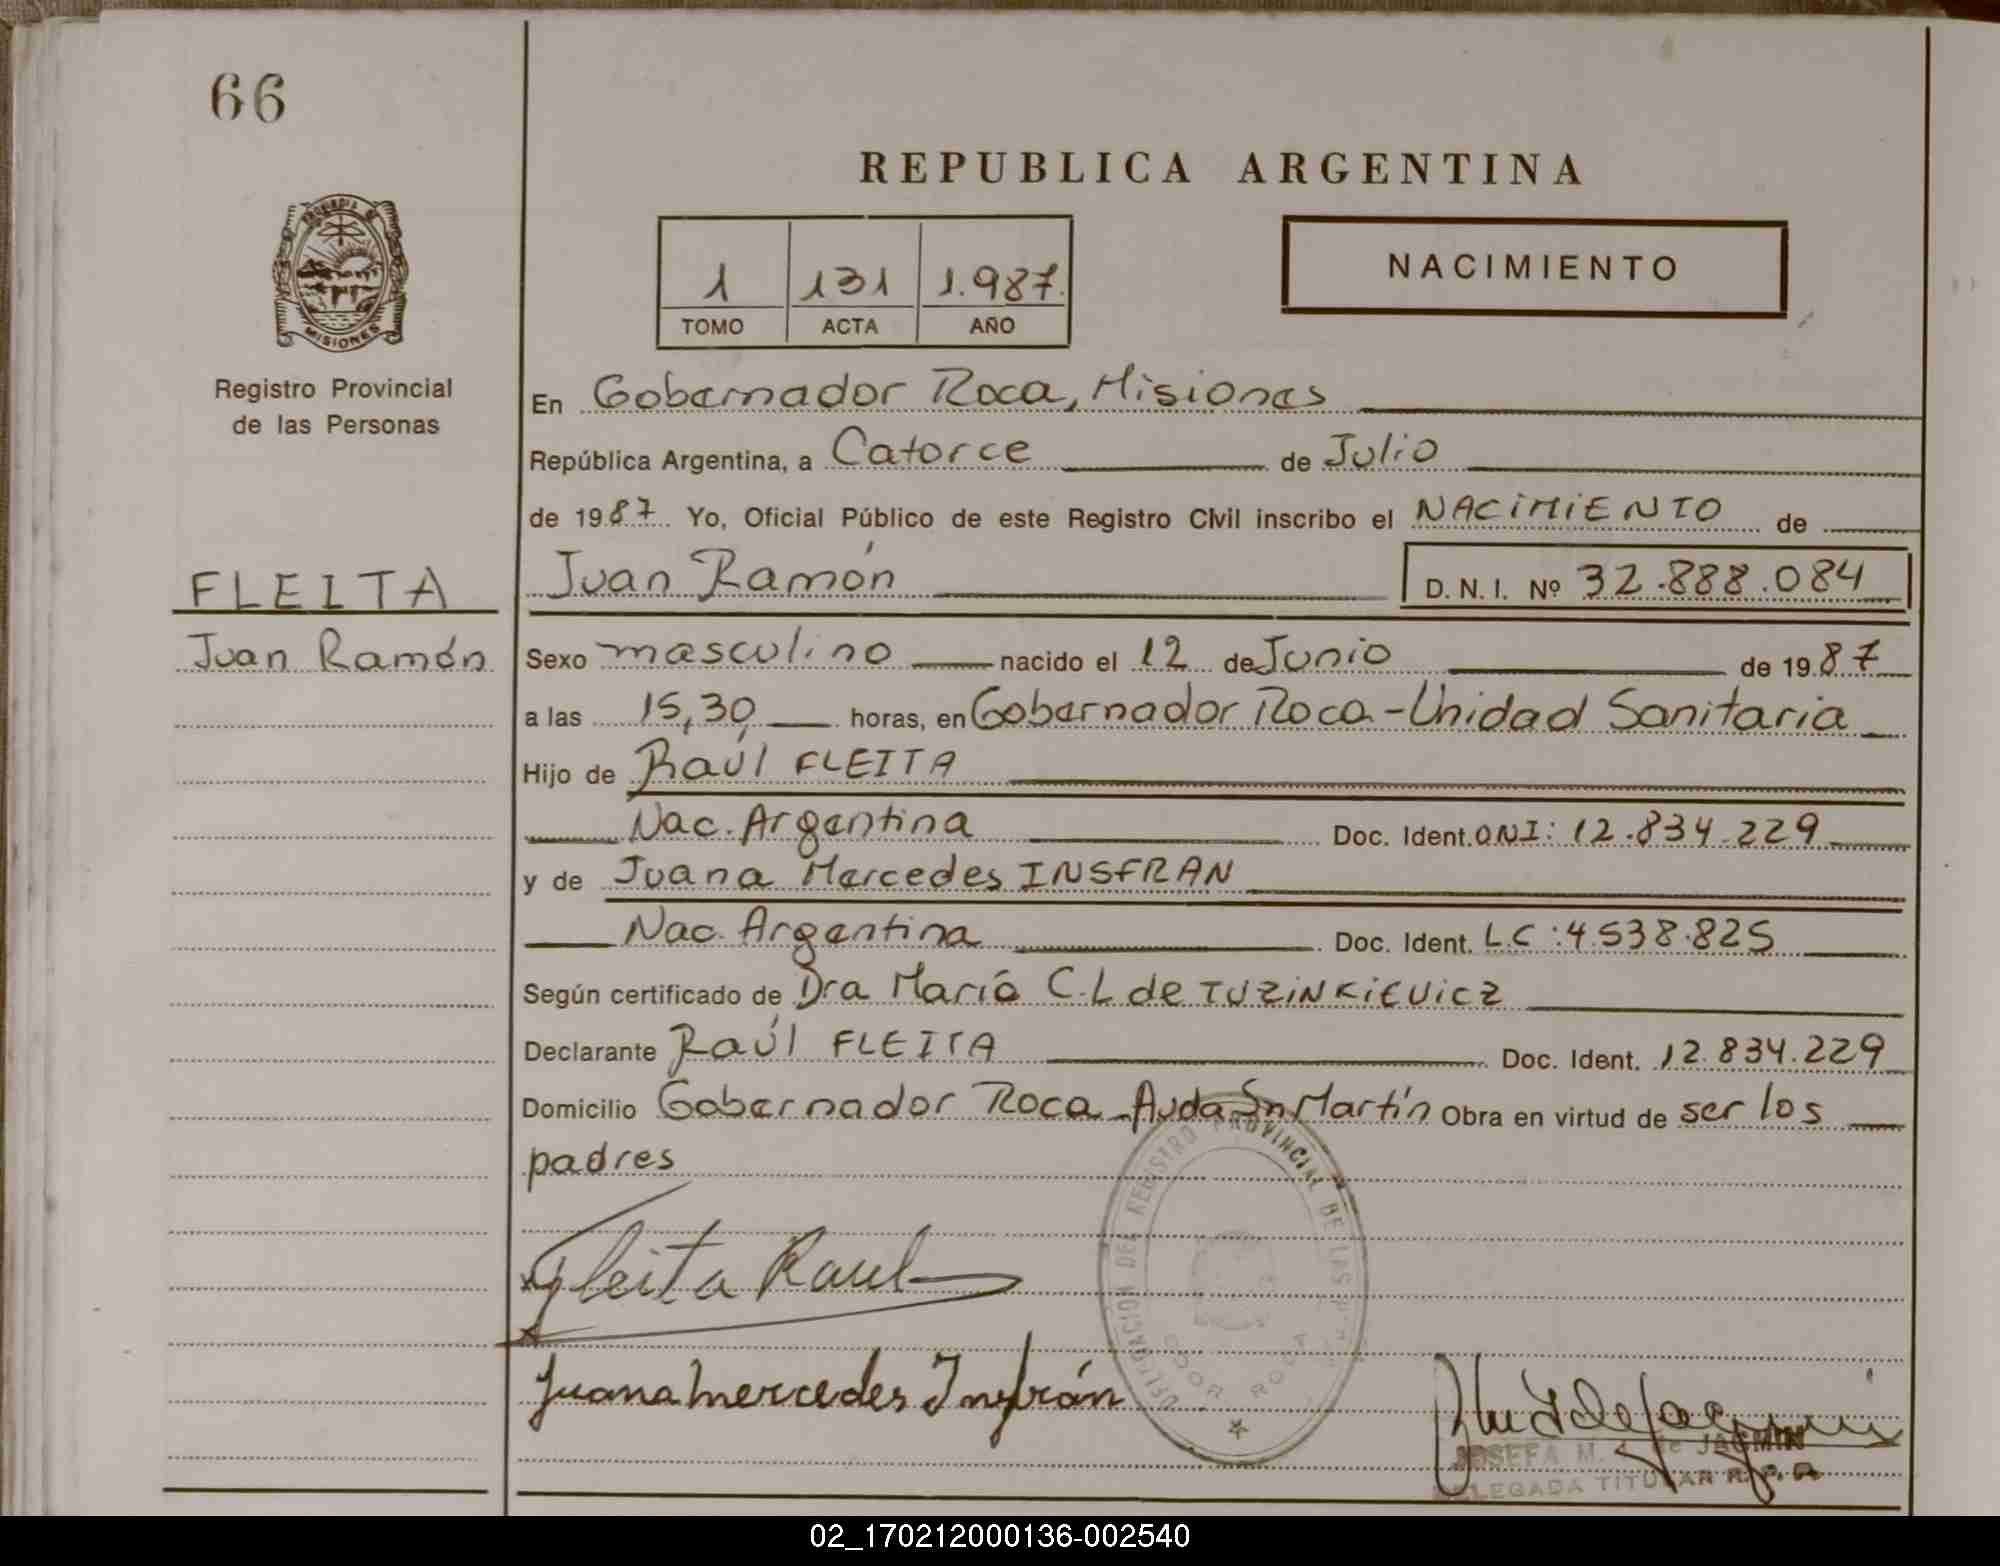 66
REPUBLICA ARGENTINA
PROVINCIA DE
MISIONES
1 131 1.987.
TOMO ACTA AÑO
NACIMIENTO
Registro Provincial
de las Personas
En Gobernador Roca, Misiones
República Argentina, a Catorce de Julio
de 1987 Yo, Oficial Público de este Registro Civil inscribo el NACIMIENTO de
FLEITA
Juan Ramón D. N. I. Nº 32.888.084
Juan Ramón
Sexo masculino nacido el 12 de Junio de 1987
a las 15,30 horas, en Gobernador Roca - Unidad Sanitaria
Hijo de Raúl FLEITA
Nac. Argentina Doc. Ident. DNI: 12.834.229
y de Juana Mercedes INSFRAN
Nac. Argentina Doc. Ident. L.C: 4.538.825
Según certificado de Dra María C.L de TUZINKIEVICZ
Declarante Raúl FLEITA Doc. Ident. 12.834.229
Domicilio Gobernador Roca Avda Sn Martín Obra en virtud de ser los
padres
DELEGACION DEL REGISTRO PROVINCIAL DE LAS
GDOR ROCA
Fleita Raul
Juana Mercedes Insfrán
JOSEFA M. de JACMIN
DELEGADA TITULAR R. P. P.
02_170212000136-002540